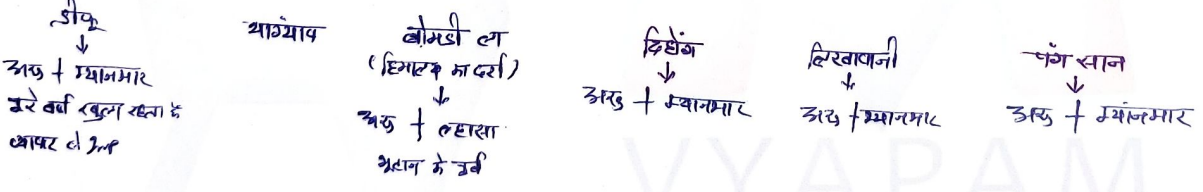 डीफू
↓
अरु + म्यानमार
पूरे वर्ष खुला रहता है
व्यापार से Imp
यांग्याप
बोमडी ला
(हिमालय का दर्रा)
↓
अरु + ल्हासा
भूटान के पूर्व
दिहोंग
↓
अरु + म्यानमार
लिखापानी
↓
अरु + म्यानमार
पंग सान
↓
अरु + म्यांनमार
VYAPAM